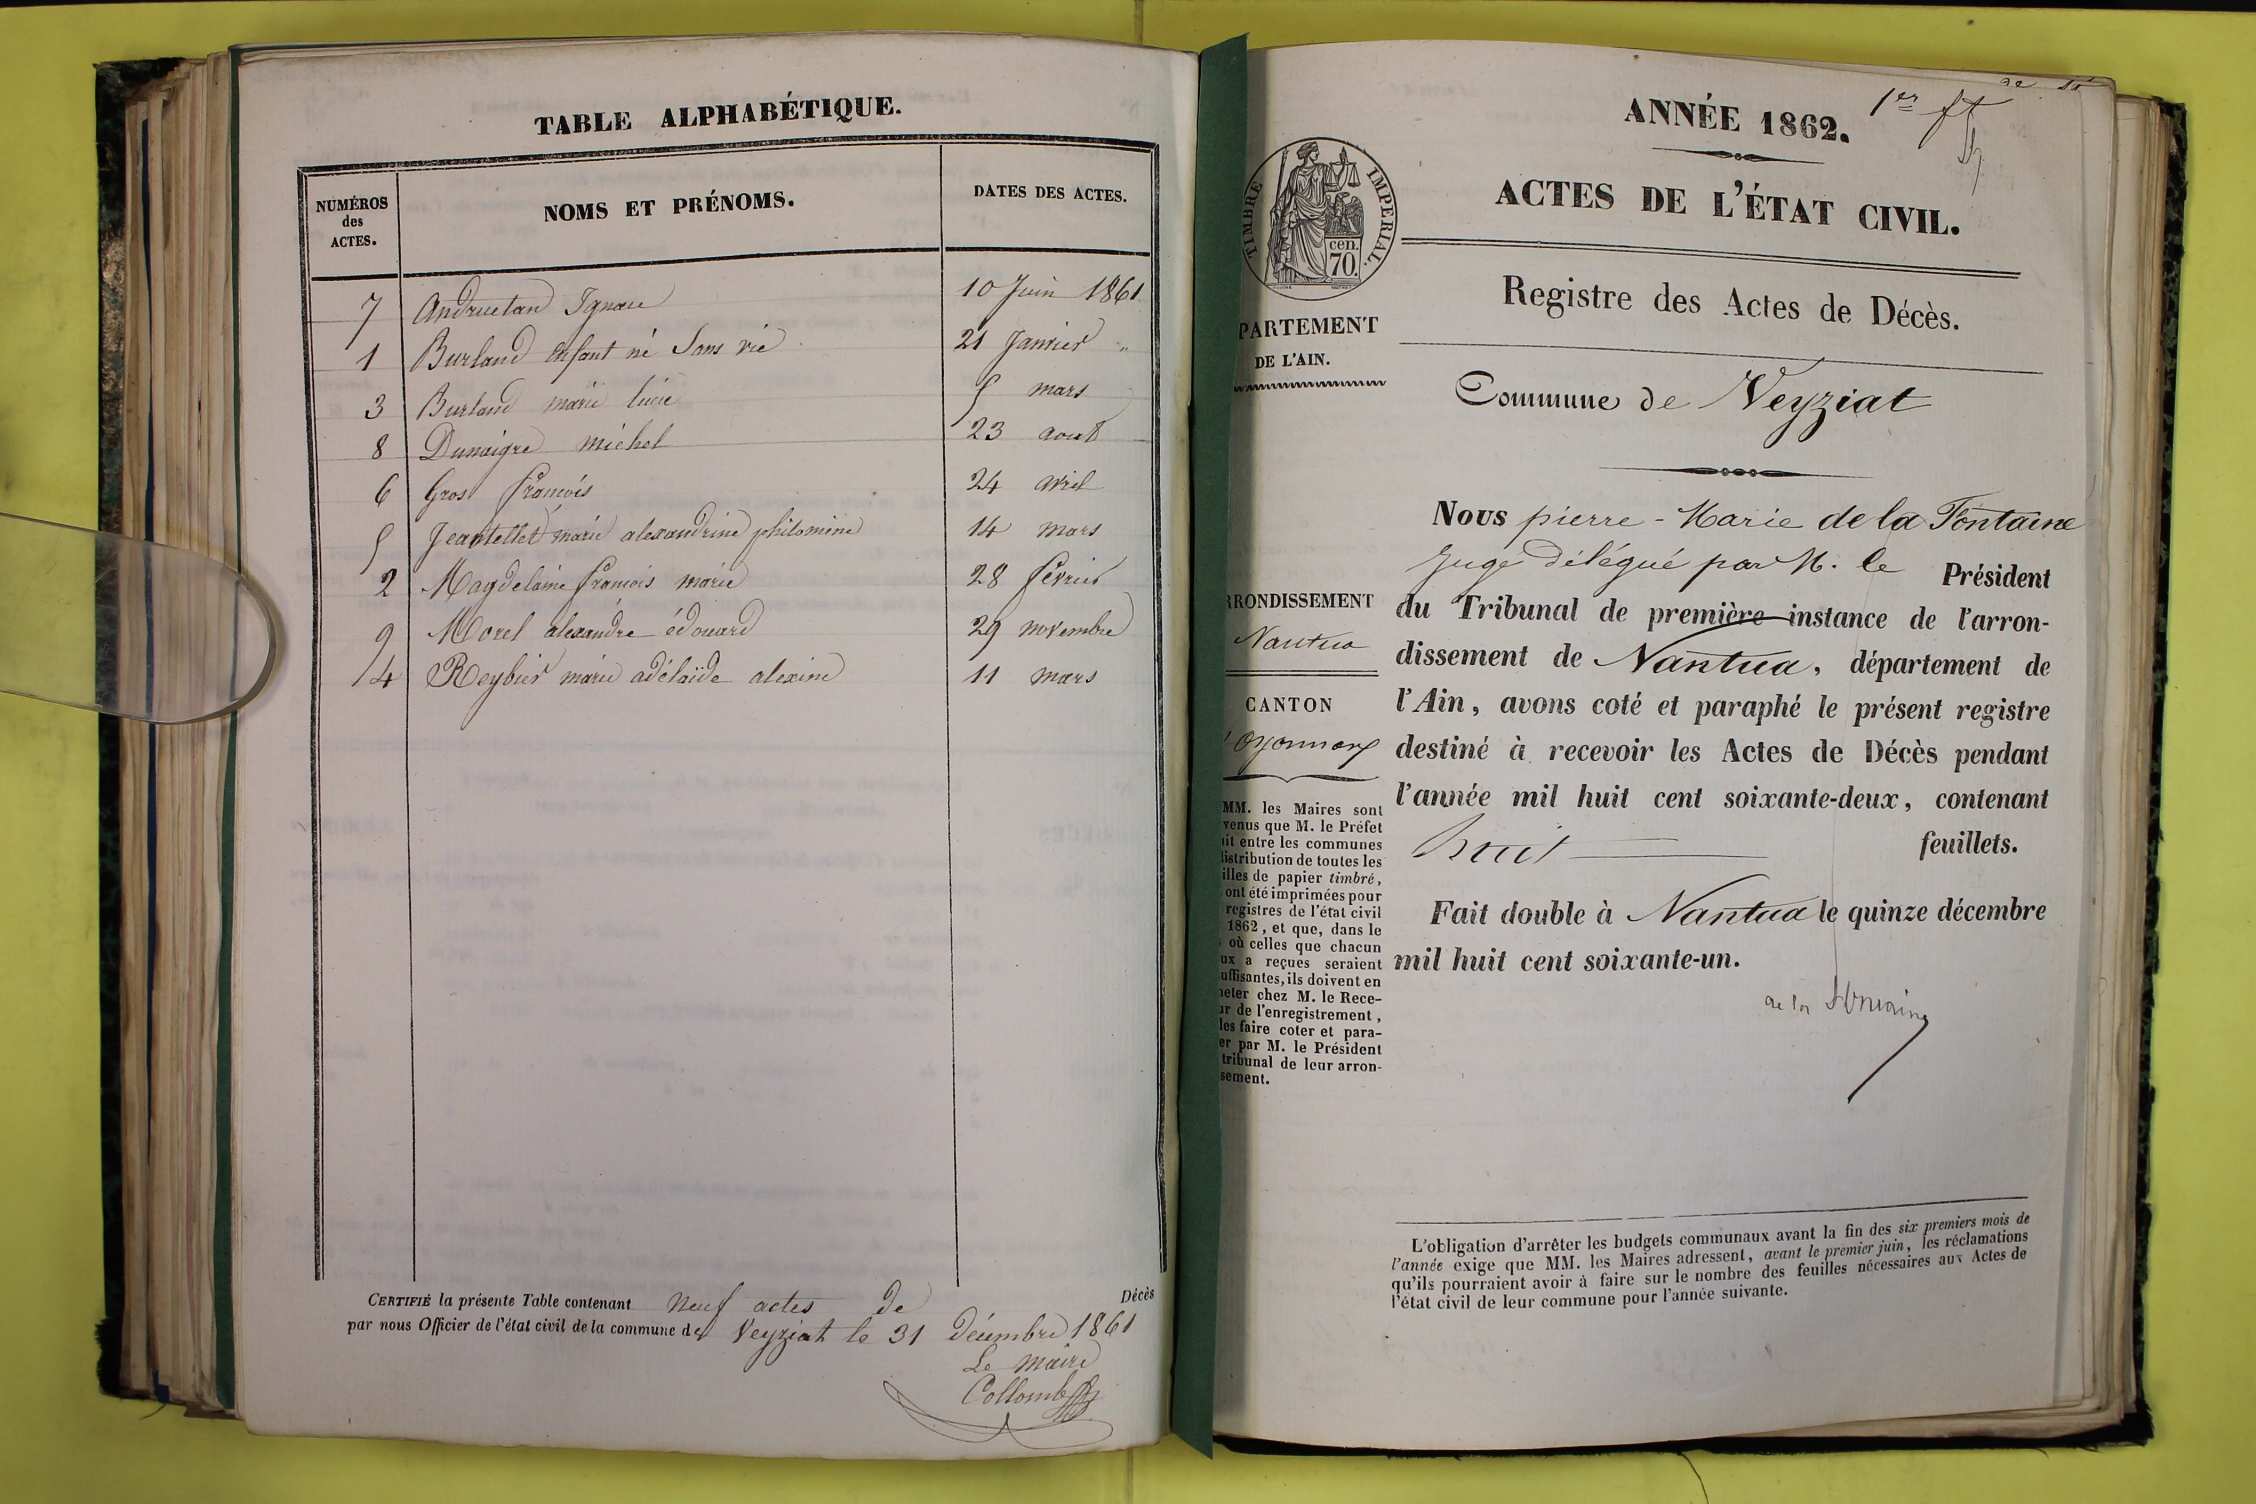 TABLE ALPHABÉTIQUE.
NUMÉROS des ACTES. NOMS ET PRÉNOMS. DATES DES ACTES.
7 Andruetan Ignace 10 Juin 1861
1 Burland enfant né Sans vie 21 Janvier "
3 Burland marie lucie 5 mars
8 Dunaigre michel 23 aout
6 Gros françois 24 avril
5 Jeantellet marie alexandrine philomine 14 mars
2 Magdelaine françois marie 28 février
9 Morel alexandre édouard 29 novembre
4 Reybier marie adélaïde alexine 11 mars
CERTIFIÉ la présente Table contenant neuf actes de Décès
par nous Officier de l'état civil de la commune de Veyziat le 31 Décembre 1861
Le maire
Collomb
1er ft
ANNÉE 1862.
ACTES DE L'ÉTAT CIVIL.
TIMBRE IMPÉRIAL.
cen.
70.
Registre des Actes de Décès.
PARTEMENT
DE L'AIN.
Commune de Veyziat
RRONDISSEMENT
Nantua
CANTON
Oyonnax
MM. les Maires sont
venus que M. le Préfet
it entre les communes
distribution de toutes les
illes de papier timbré,
ont été imprimées pour
registres de l'état civil
1862, et que, dans le
où celles que chacun
ux a reçues seraient
uffisantes, ils doivent en
heter chez M. le Rece-
ur de l'enregistrement,
les faire coter et para-
er par M. le Président
tribunal de leur arron-
sement.
Nous pierre-Marie de la Fontaine
Juge délégué par M. le Président
du Tribunal de première instance de l'arron-
dissement de Nantua, département de
l'Ain, avons coté et paraphé le présent registre
destiné à recevoir les Actes de Décès pendant
l'année mil huit cent soixante-deux, contenant
huit feuillets.
Fait double à Nantua le quinze décembre
mil huit cent soixante-un.
de la Fontaine
L'obligation d'arrêter les budgets communaux avant la fin des six premiers mois de
l'année exige que MM. les Maires adressent, avant le premier juin, les réclamations
qu'ils pourraient avoir à faire sur le nombre des feuilles nécessaires aux Actes de
l'état civil de leur commune pour l'année suivante.